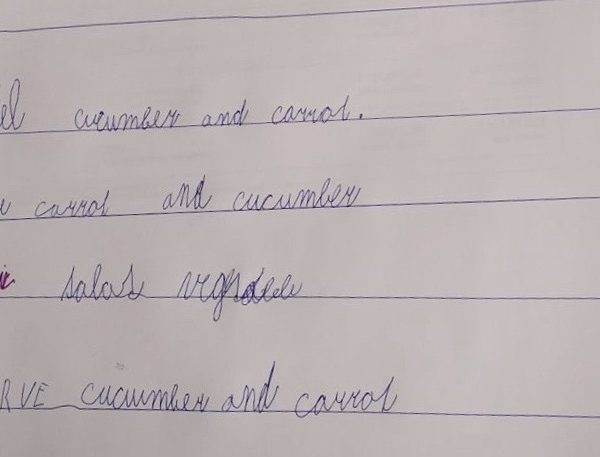 el cucumber and carrot.
carrot and cucumber
salad
RVE cucumber and carrot